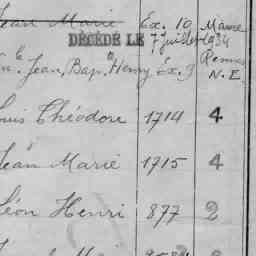 Jean Marie Ex. 10 Maine
DÉCÉDÉ LE 7 juillet 1934
Jean, Bap. Henry Ex. 9 Rennes N.E.
Louis Théodore 1714 4
Jean Marie 1715 4
Léon Henri 877 2